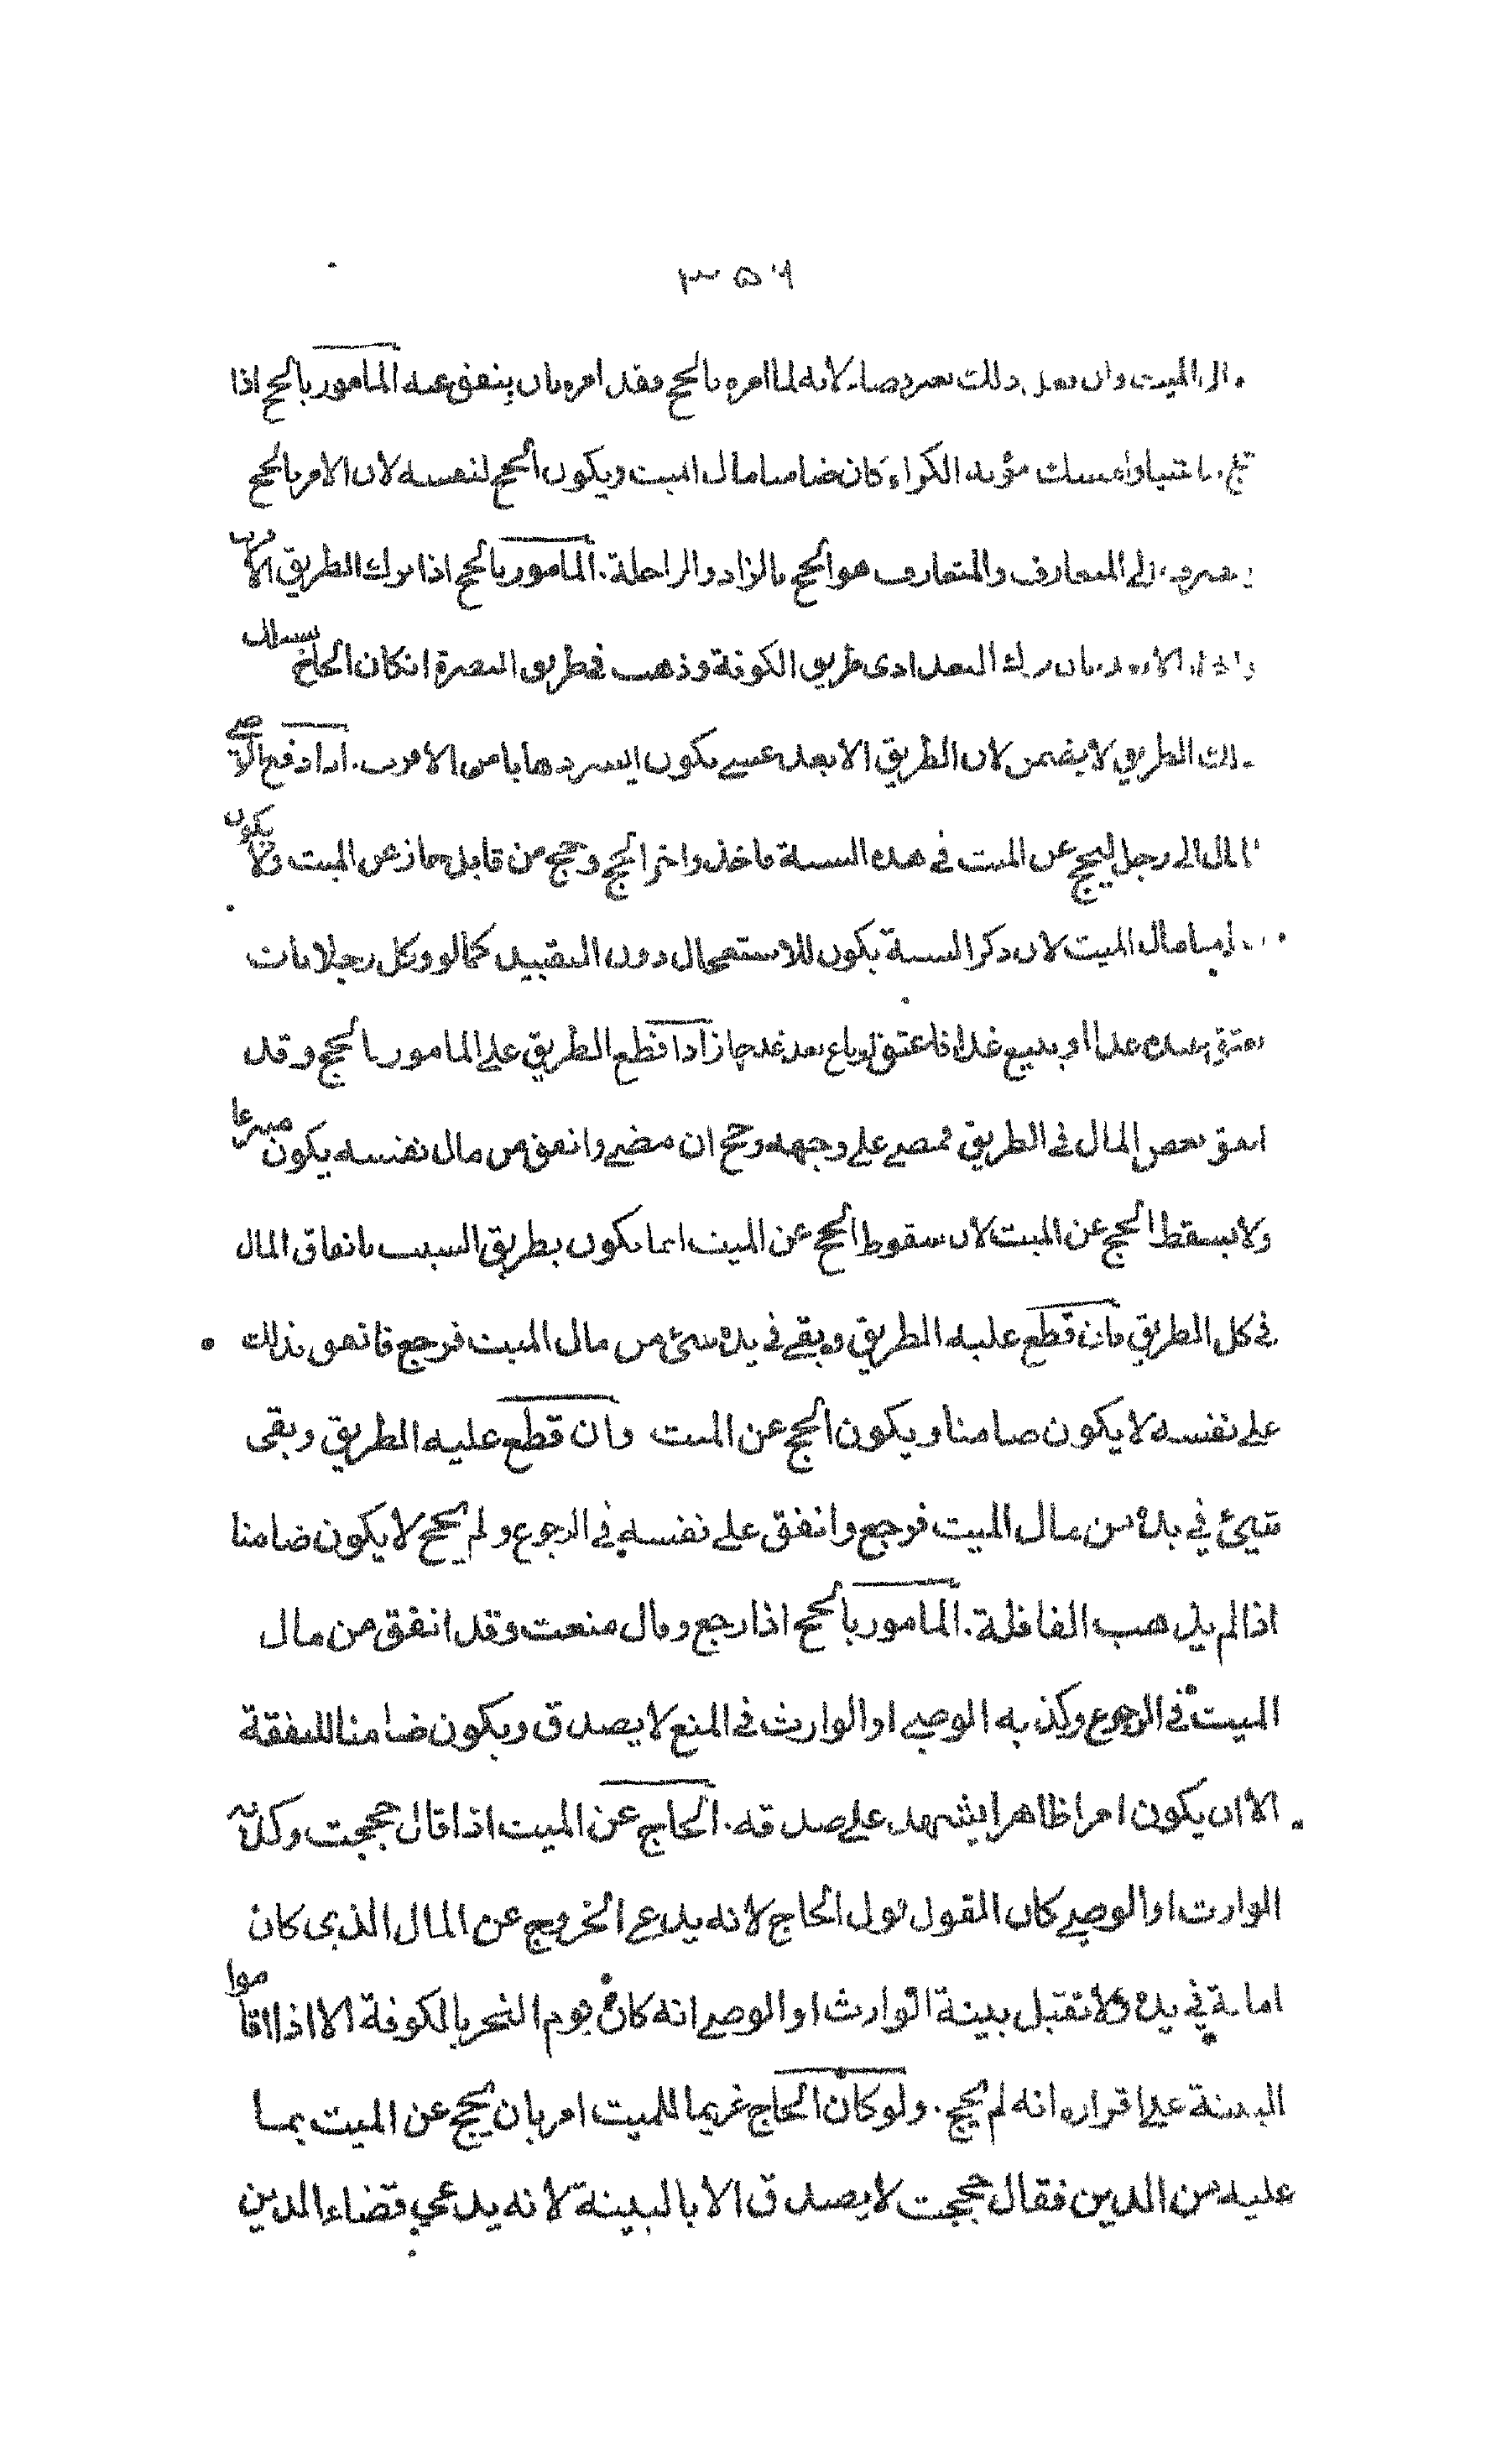 ٣٥٦
مال الميت وان فعل ذلك لانه لما امره بالحج فقد امره بان ينفق عنه المامور بالحج اذا
حج ماشيا وامسك مؤنة الكراء كان ضامنا مال الميت ويكون الحج لنفسه لان الامر بالحج
ينصرف الى المتعارف والمتعارف هو الحج بالزاد والراحلة . المامور بالحج اذا ترك الطريق الاقرب
الابعد بان ترك البغدادى طريق الكوفة وذهب فى طريق البصرة انكان الحاج يسلك
ذلك الطريق لا يضمن لان الطريق الابعد عسى يكون ايسر ذهابا من الاقرب . اذا دفع الوصى
المال الى رجل ليحج عن الميت فى هذه السنة فاخذ واخر الحج وحج من قابل جاز عن الميت ولا يكون
ضامنا مال الميت لان ذكر السنة يكون للاستعجال دون التقييد كما لو وكل رجلا بان
يعتق عبده غدا او يبيع غدا فاعتق او باع بعد غد جاز اذا قطع الطريق على المامور بالحج وقد
انفق بعض المال فى الطريق فمضى على وجهه وحج ان مضى وانفق من مال نفسه يكون متبرعا
ولا يسقط الحج عن الميت لان سقوط الحج عن الميت انما يكون بطريق السبب بانفاق المال
فى كل الطريق فان قطع عليه الطريق وبقى فى يده شئ من مال الميت فرجع فانفق ذلك
على نفسه لا يكون ضامنا ويكون الحج عن الميت وان قطع عليه الطريق وبقى
شئ فى يده من مال الميت فرجع وانفق على نفسه فى الرجوع ولم يحج لا يكون ضامنا
اذا لم يذهب القافلة . المامور بالحج اذا رجع وقال منعت وقد انفق من مال
الميت فى الرجوع وكذبه الوصى او الوارث فى المنع لا يصدق ويكون ضامنا للنفقة
الا ان يكون امرا ظاهرا يشهد على صدقه . الحاج عن الميت اذا قال حججت وكذبه
الوارث او الوصى كان القول قول الحاج لانه يدعى الخروج عن المال الذى كان
امانة فى يده ولا تقبل بينة الوارث او الوصى انه كان يوم النحر بالكوفة الا اذا اقاموا
البينة على اقراره انه لم يحج . ولو كان الحاج غريما للميت امر بان يحج عن الميت بما
عليه من الدين فقال حججت لا يصدق الا بالبينة لانه يدعى قضاء الدين